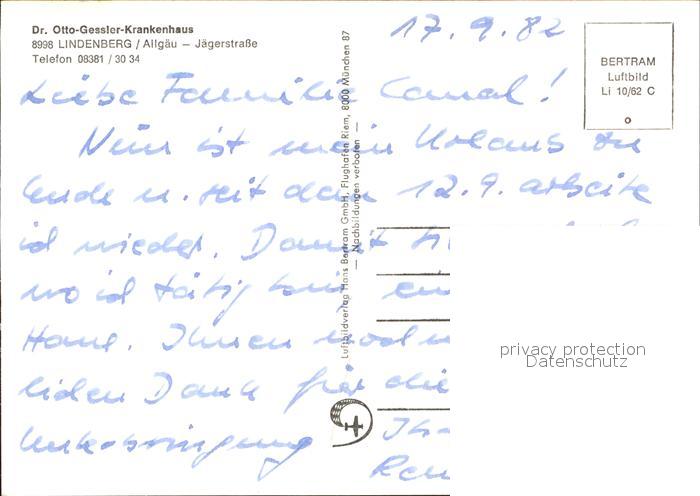 Dr. Otto-Gessler-Krankenhaus
8998 LINDENBERG / Allgäu — Jägerstraße
Telefon 08381 / 30 34
17.9.82
BERTRAM
Luftbild
Li 10/62 C
Liebe Familie
Nun ist mein Urlaub zu
Ende u. seit dem 12.9. arbeite
ich wieder. Damit
wo ich tätig bin, ein
Haus. Ihnen noch
lichen Dank für die
Unterbringung
Luftbildverlag Hans Bertram GmbH, Flughafen Riem, 8000 München 87
— Nachbildungen verboten —
privacy protection
Datenschutz